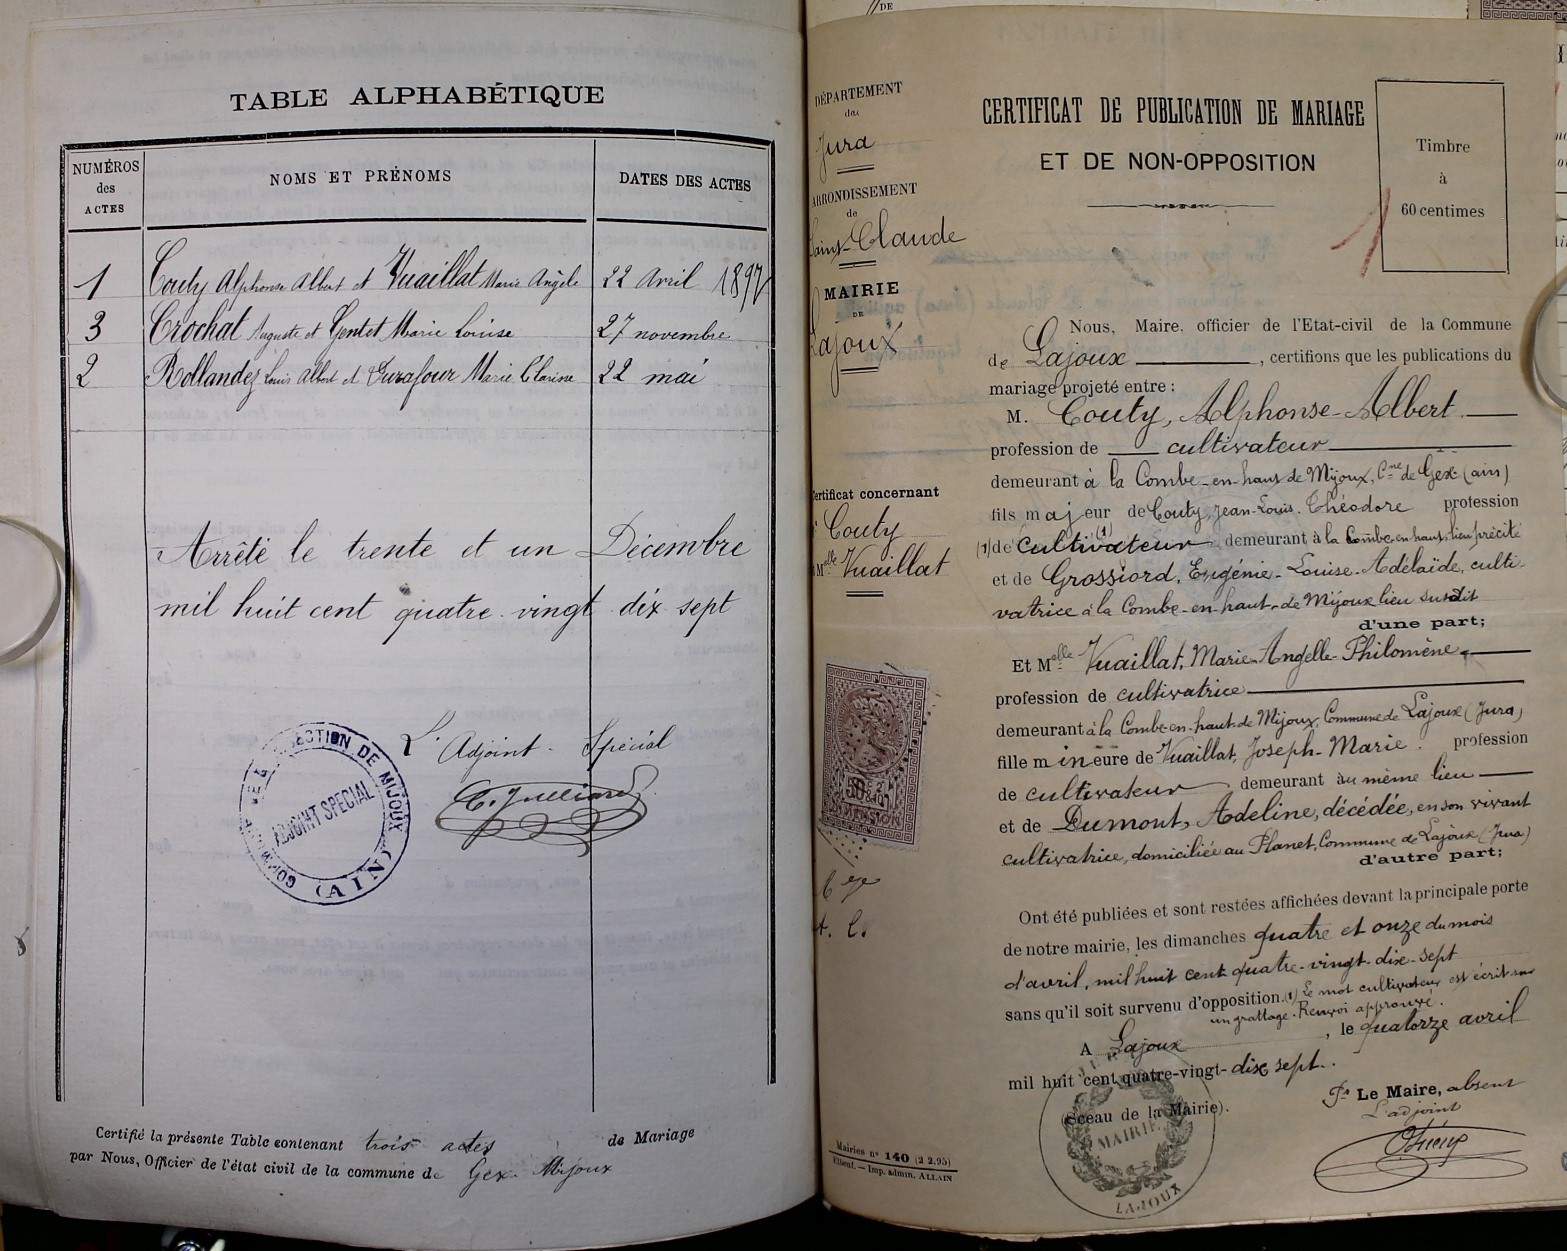 TABLE ALPHABÉTIQUE
NUMÉROS
des
ACTES
NOMS ET PRÉNOMS
DATES DES ACTES
1 Couty Alphonse Albert et Vuaillat Marie Angèle 22 Avril 1897
3 Crochat Auguste et Gentet Marie Louise 27 novembre
2 Rollandez Louis Albert et Durafour Marie Clarisse 22 mai
Arrêté le trente et un Décembre
mil huit cent quatre-vingt dix sept
L'Adjoint-Spécial
SECTION DE MIJOUX
ADJOINT SPECIAL
(AIN)
Certifié la présente Table contenant trois actes de Mariage
par Nous, Officier de l'état civil de la commune de Gex-Mijoux
DÉPARTEMENT
du
Jura
ARRONDISSEMENT
de
Saint-Claude
MAIRIE
DE
Lajoux
Certificat concernant
Couty
Melle Vuaillat
DIMENSION
Mairies n° 140 (2 2.95)
Imp. admin. ALLAIN
CERTIFICAT DE PUBLICATION DE MARIAGE
ET DE NON-OPPOSITION
Timbre
à
60 centimes
Nous, Maire, officier de l'Etat-civil de la Commune
de Lajoux, certifions que les publications du
mariage projeté entre :
M. Couty, Alphonse-Albert
profession de cultivateur
demeurant à la Combe-en-haut de Mijoux, Cne de Gex (ain)
fils majeur de Couty, Jean-Louis-Théodore profession
(1) de cultivateur (1) demeurant à la Combe-en-haut, lieu précité
et de Grossiord, Eugénie-Louise-Adélaïde, culti-
vatrice à la Combe-en-haut-de Mijoux lieu susdit
d'une part;
Et Melle Vuaillat, Marie-Angelle-Philomène
profession de cultivatrice
demeurant à la Combe-en-haut-de Mijoux, Commune de Lajoux (Jura)
fille mineure de Vuaillat, Joseph-Marie. profession
de cultivateur demeurant au même lieu
et de Dumont, Adeline, décédée, en son vivant
cultivatrice, domiciliée au Planet, Commune de Lajoux (Jura)
d'autre part;
Ont été publiées et sont restées affichées devant la principale porte
de notre mairie, les dimanches quatre et onze du mois
d'avril, mil huit cent quatre-vingt-dix-sept
sans qu'il soit survenu d'opposition. (1) Le mot cultivateur est écrit sur
un grattage. Renvoi approuvé.
A Lajoux, le quatorze avril
mil huit cent quatre-vingt-dix sept.
(Sceau de la Mairie).
MAIRIE
LAJOUX
Pr Le Maire, absent
L'adjoint